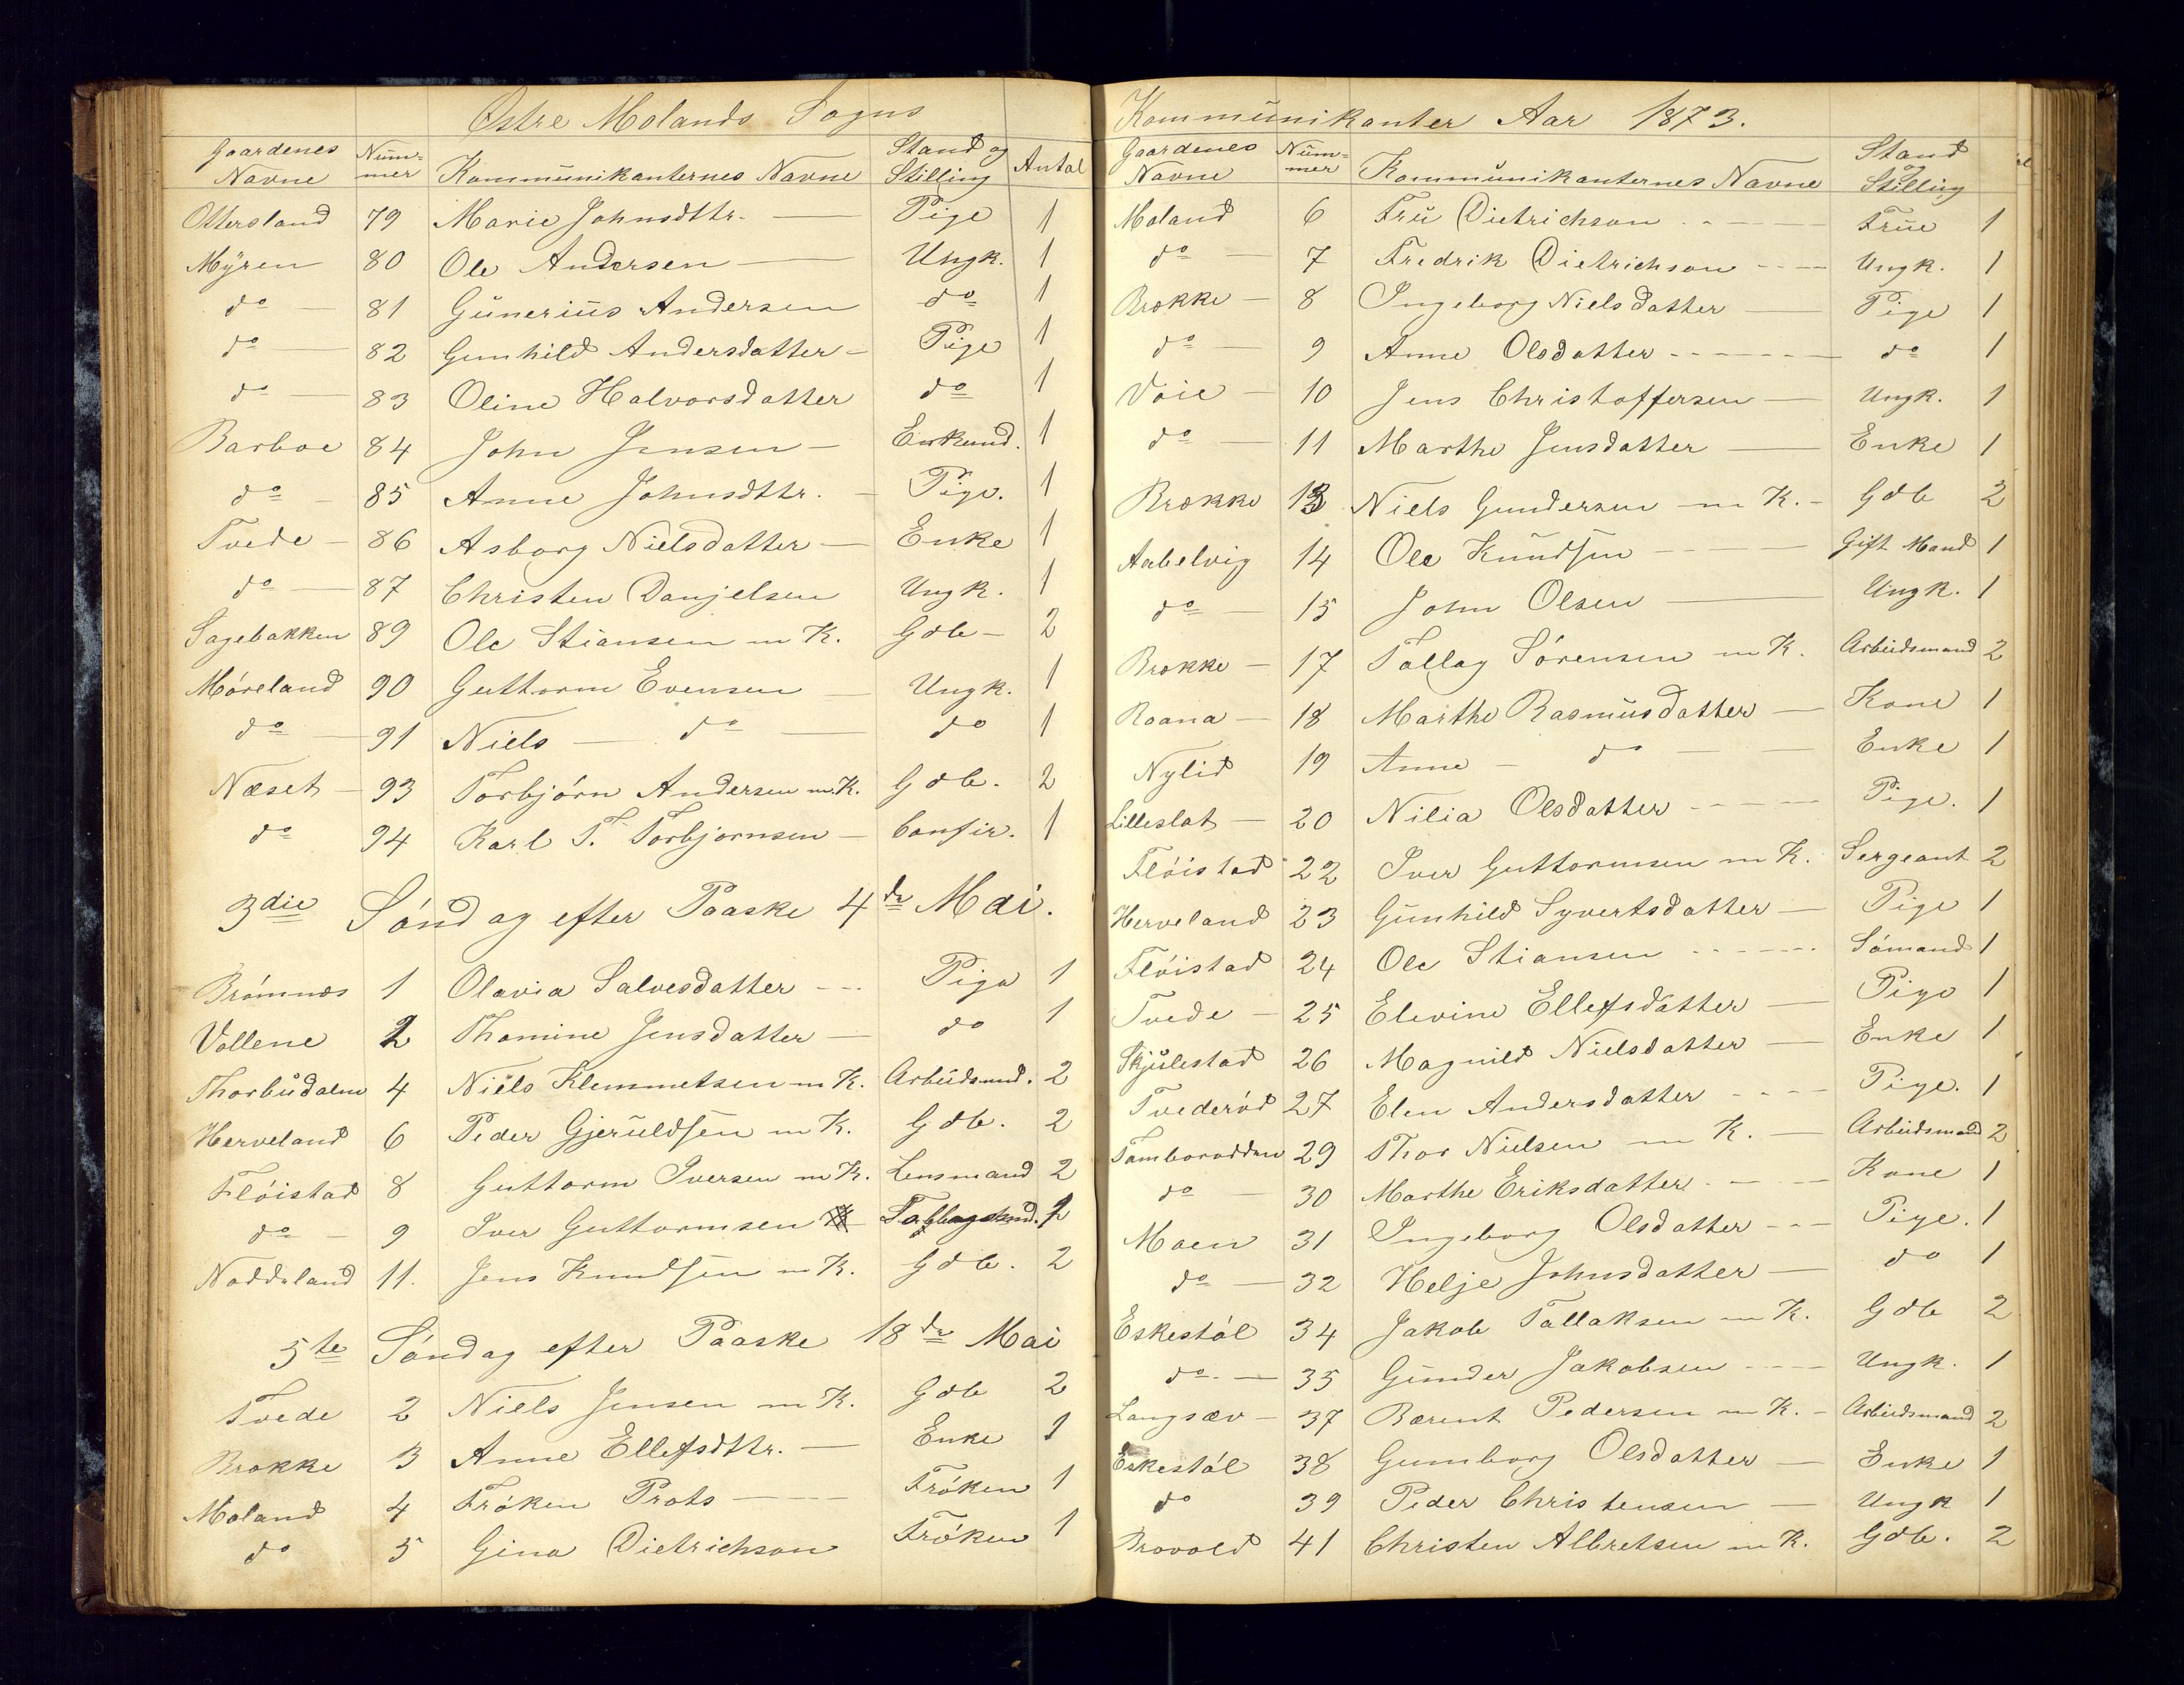 Østre Molands Sogns
Gaardenes Navne Nummer Kommünikanternes Navne Stand og Stilling Antal
Ottersland 79 Marie Johnsdttr. Pige 1
Myren 80 Ole Andersen Ungk. 1
do 81 Günerius Andersen do 1
do 82 Gunhild Andersdatter Pige 1
do 83 Oline Halvorsdatter do 1
Barboe 84 John Jensen Enkemd. 1
do 85 Anne Johnsdttr. Pige. 1
Tvede 86 Asborg Nielsdatter Enke 1
do 87 Christen Danjelsen Ungk. 1
Sagebakken 89 Ole Stiansen m K. Gdb 2
Møreland 90 Guttorm Evensen Ungk. 1
do 91 Niels do do 1
Næset 93 Torbjørn Andersen m.K. Gdb. 2
do 94 Karl T. Torbjørnsen Confir. 1
3die Søndag efter Paaske 4de Mai.
Brømnes 1 Olavia Salvesdatter Pige 1
Vollene 2 Thomine Jensdatter do 1
Thorbüdalen 4 Niels Klemmetsen m K. Arbeidsmd. 2
Herveland 6 Peder Gjerüldsen m K. Gdb. 2
Fløistad 8 Guttorm Iversen m K. Lensmand 2
do 9 Iver Guttormsen 1
Noddeland 11. Jens Knudsen m K. Gdb. 2
5te Søndag efter Paaske 18de Mai
Tvede 2 Niels Jensen m K. Gdb 2
Brække 3 Anne Ellefsdttr. Enke 1
Moland 4 Frøken Prots Frøken 1
do 5 Gina Dietrichson Frøken 1
Kommünikanter Aar 1873.
Gaardenes Navne Nummer Kommünikanternes Navne Stand og Stilling
Moland 6 Frü Dietrichson Früe 1
do 7 Fredrik Dietrichson Ungk. 1
Brække 8 Ingeborg Nielsdatter Pige 1
do 9 Anne Olsdatter do 1
Voie 10 Jens Christoffersen Ungk. 1
do 11 Marthe Jensdatter Enke 1
Brække 13 Niels Gundersen m K. Gdb 2
Aabelvig 14 Ole Knudsen Gift Mand 1
do 15 John Olsen Ungk. 1
Brække 17 Tallag Sørensen m K. Arbeidsmand 2
Roana 18 Marthe Rasmusdatter Kone 1
Nylid 19 Anne do Enke 1
Lilleslat 20 Nilia Olsdatter Pige. 1
Fløistad 22 Iver Guttormsen m K. Sergeant 2
Herveland 23 Günhild Syvertsdatter Pige 1
Fløistad 24 Ole Stiansen Sømand 1
Tvede 25 Elevine Ellefsdatter Pige 1
Skjulestad 26 Magnild Nielsdatter Enke 1
Tvederød 27 Elen Andersdatter Pige. 1
Tamborodden 29 Thor Nielsen m K. Arbeidsmand 2
do 30 Marthe Eriksdatter Kone 1
Moen 31 Ingeborg Olsdatter Pige. 1
do 32 Helje Johnsdatter do 1
Eskestøl 34 Jakob Tallaksen m K. Gdb 2
do 35 Günder Jakobsen Ungk. 1
Langsæv 37 Bærent Pedersen m K. Arbeidsmand 2
Eskestøl 38 Gumborg Olsdatter Enke 1
do 39 Peder Christensen Ungk 1
Brovold 41 Christen Albretsen m K. Gdb. 2